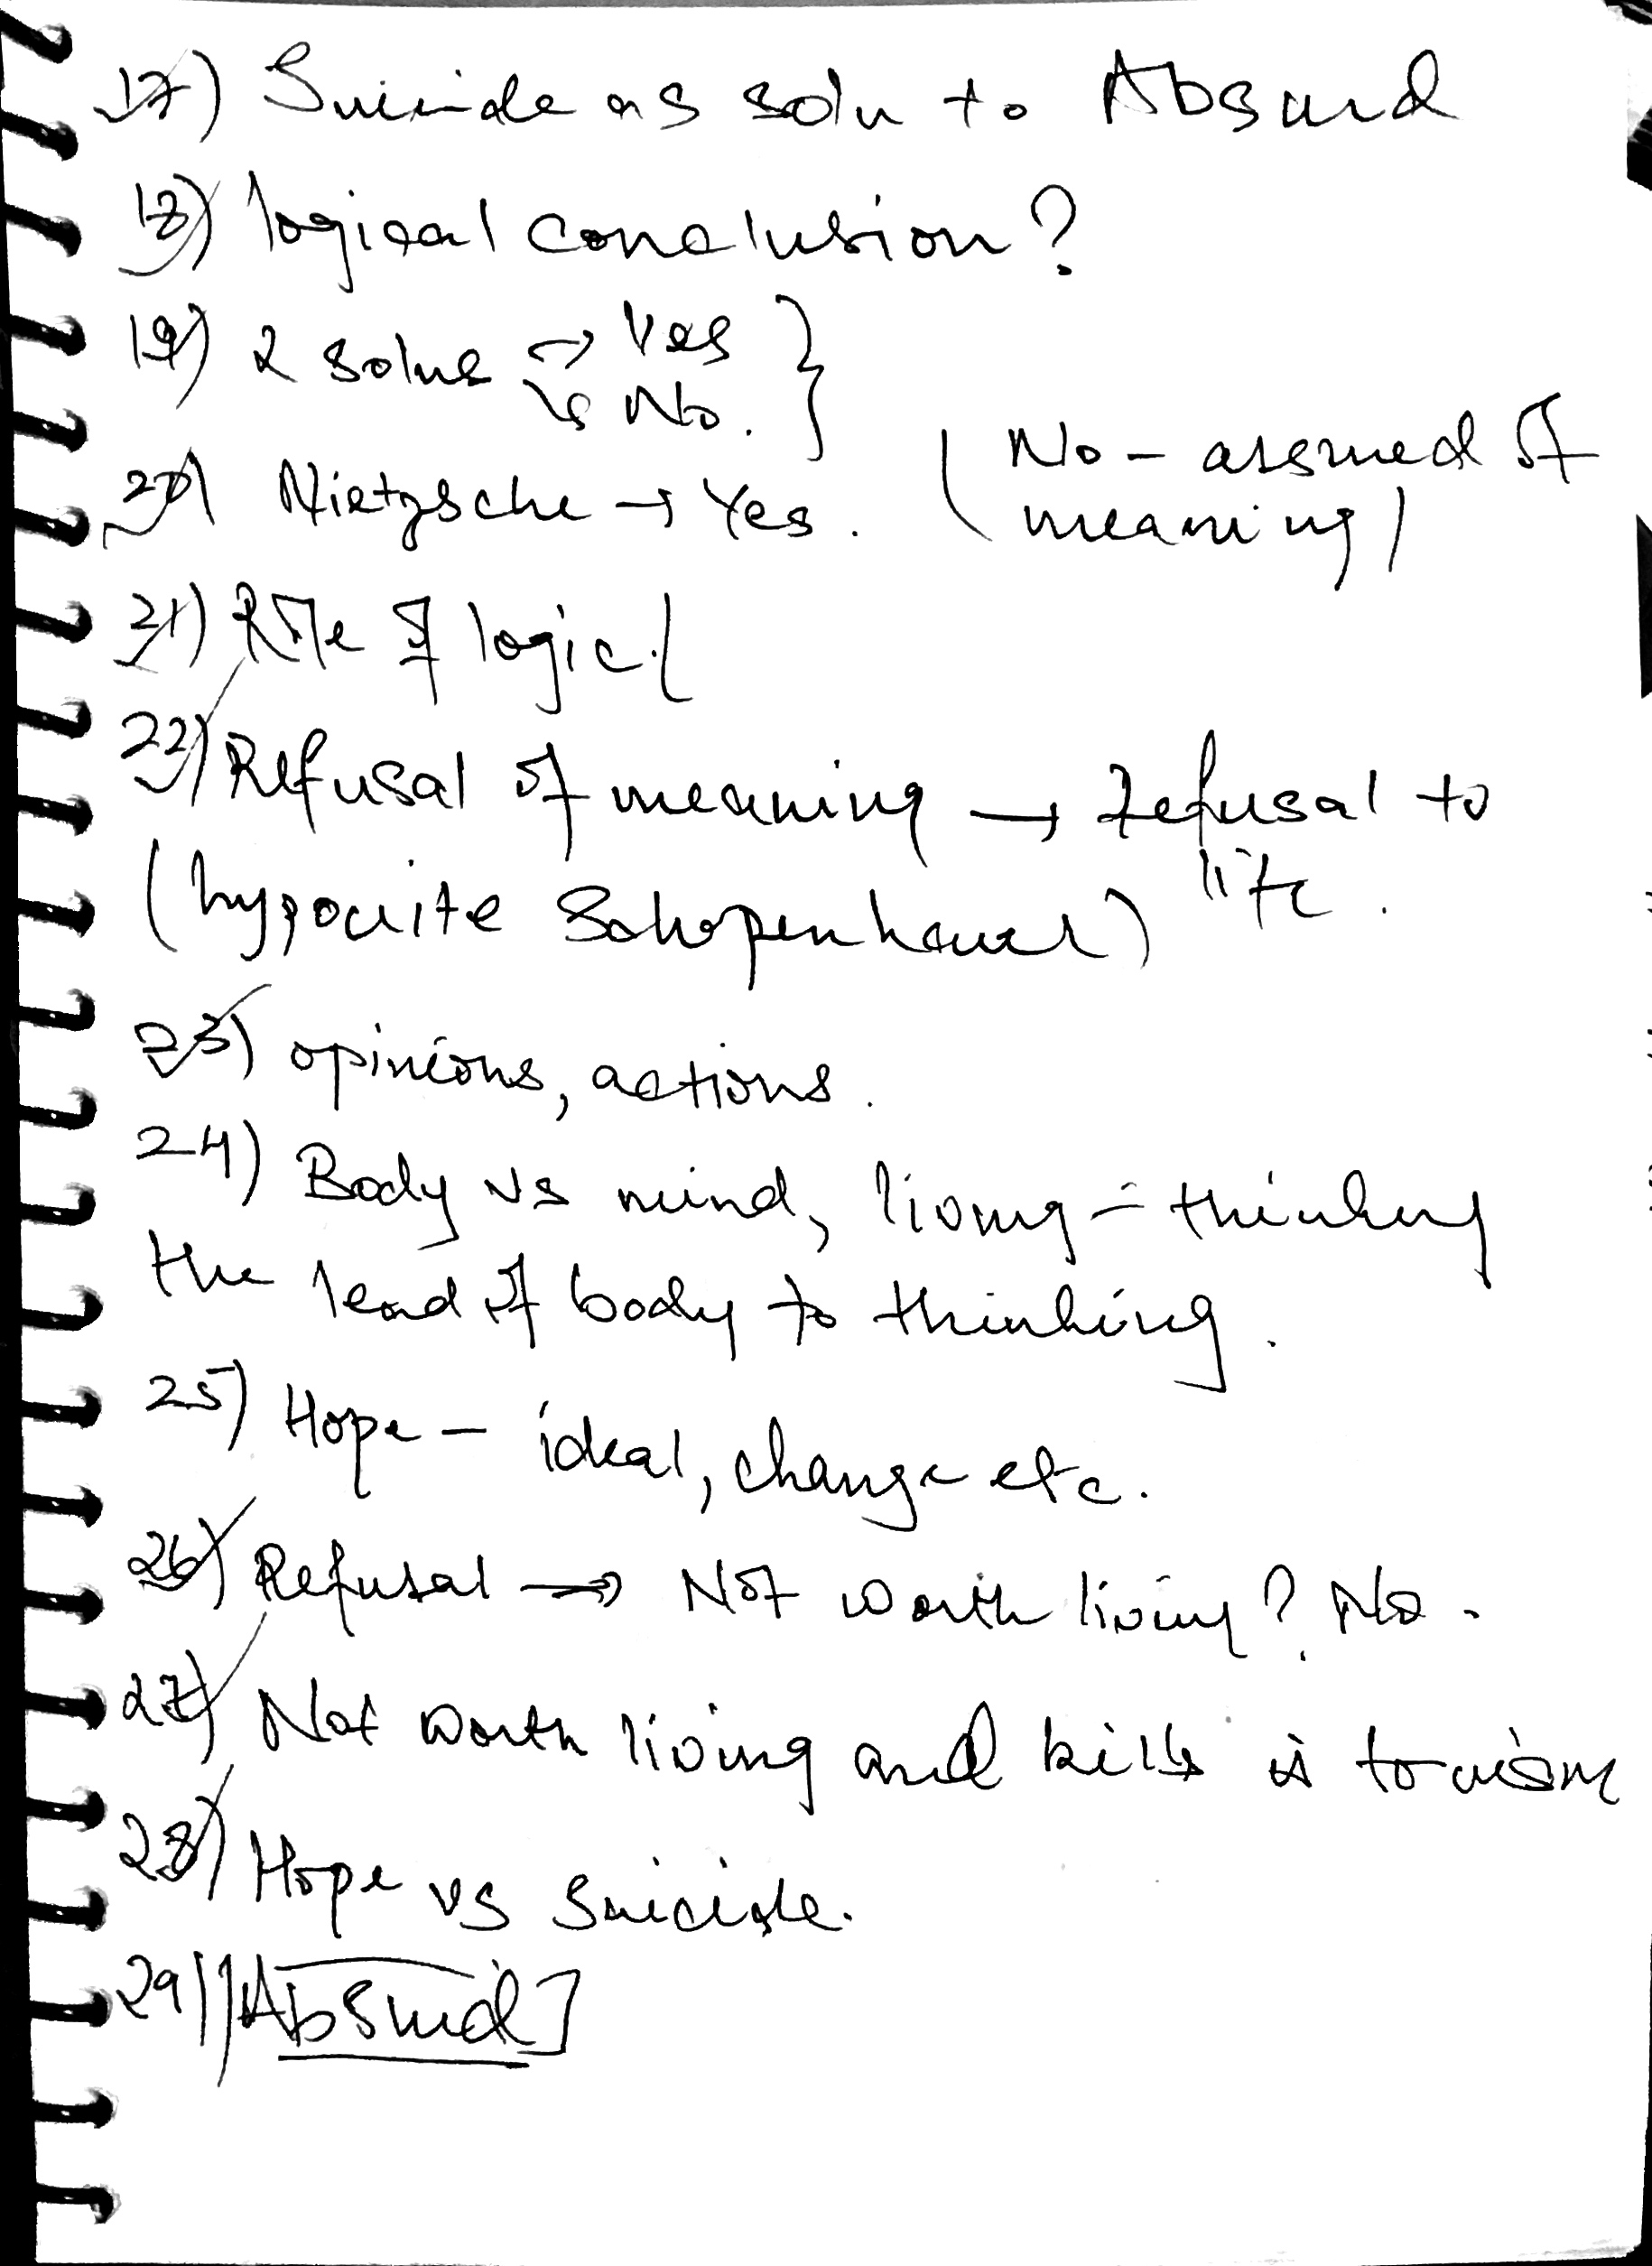 17) Suicide as soln to Absurd
18) logical conclusion?
19) 2 solns → Yes
↘ No.
20) Nietzsche → Yes. (No - assured of
meaning)
21) Role of logic.
22) Refusal of meaning → refusal to
life.
(hypocrite Schopenhauer)
23) opinions, actions.
24) Body vs mind, living - thinking
the lead of body to thinking.
25) Hope - ideal, change etc.
26) Refusal → Not worth living? No.
27) Not worth living and kills is
28) Hope vs Suicide.
29) [Absurd]